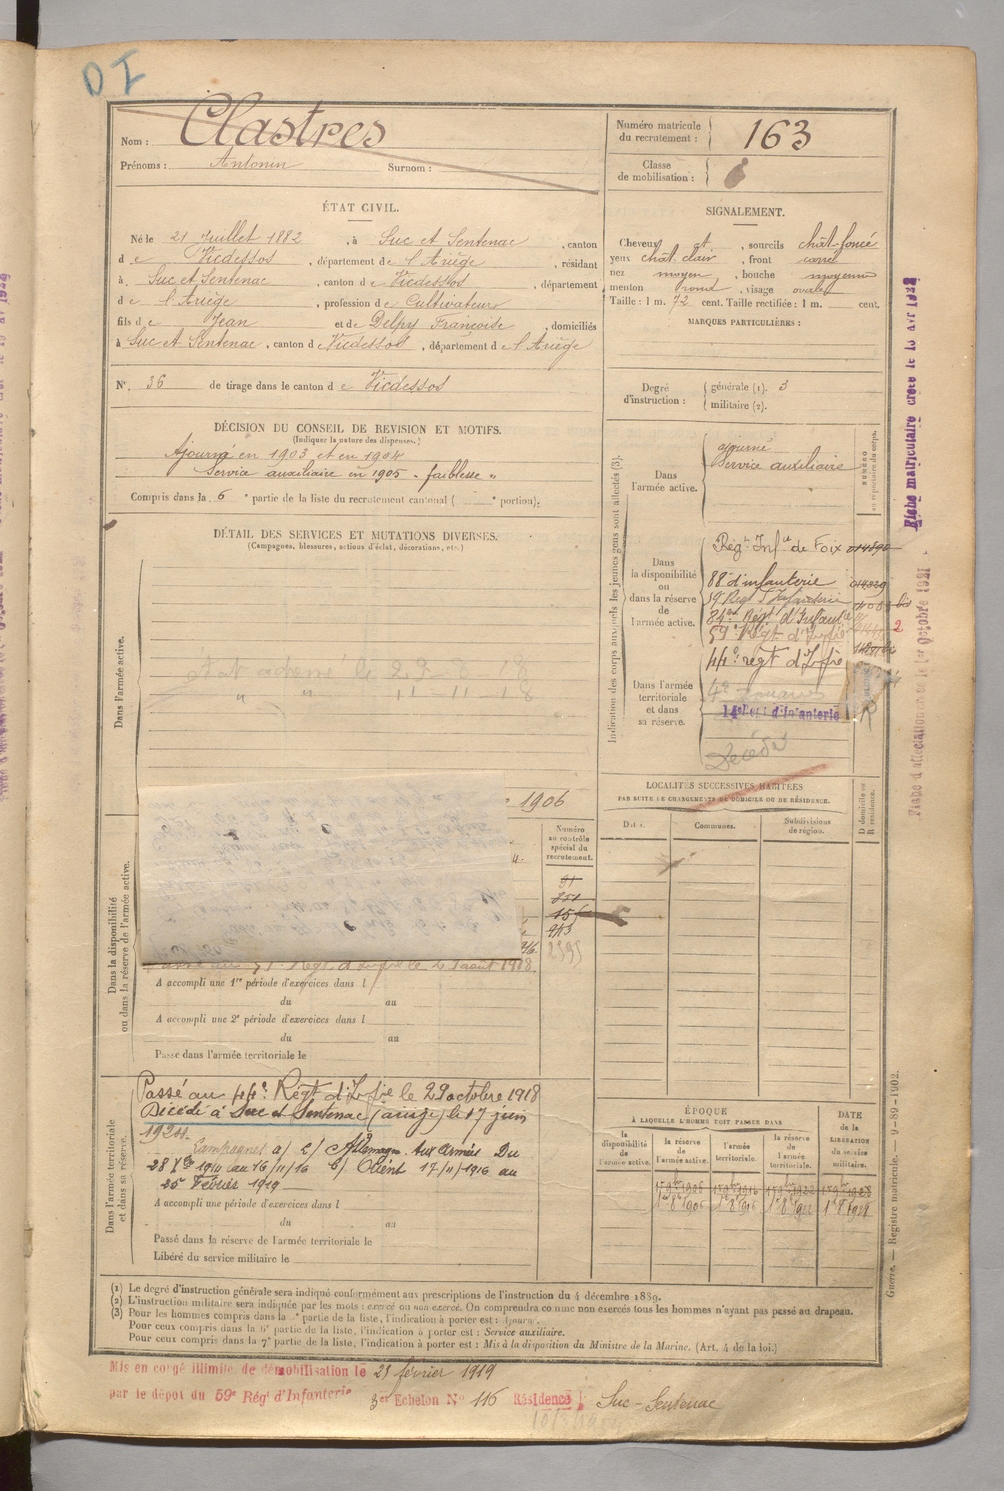 D I
Nom : Clastres
Prénoms : Antonin Surnom :
Numéro matricule du recrutement : 163
Classe de mobilisation :
ÉTAT CIVIL.
Né le 21 Juillet 1882, à Suc et Sentenac, canton
d e Vicdessos, département de l'Ariège, résidant
à Suc et Sentenac, canton de Vicdessos, département
d e l'Ariège, profession de Cultivateur
fils d e Jean et de Delpy Françoise, domiciliés
à Suc et Sentenac, canton d e Vicdessos, département d e l'Ariège
N° 36 de tirage dans le canton d e Vicdessos
SIGNALEMENT.
Cheveux , sourcils chât-foncé
yeux chât. clair, front
nez moyen, bouche moyenne
menton rond, visage ovale
Taille : 1 m. 72 cent. Taille rectifiée : 1 m. cent.
MARQUES PARTICULIÈRES :
Degré d'instruction : générale (1). 3
militaire (2).
DÉCISION DU CONSEIL DE REVISION ET MOTIFS.
(Indiquer la nature des dispenses.)
Ajourné en 1903 et en 1904
Service auxiliaire en 1905 - faiblesse "
Compris dans la 6e partie de la liste du recrutement cantonal ( e portion).
DÉTAIL DES SERVICES ET MUTATIONS DIVERSES.
(Campagnes, blessures, actions d'éclat, décorations, etc.)
Dans l'armée active.
1906
Numéro au contrôle spécial du recrutement.
Dans la disponibilité ou dans la réserve de l'armée active.
Régt d'Infie le 21 août 1918.
A accompli une 1re période d'exercices dans l
du au
A accompli une 2e période d'exercices dans l
du au
Passé dans l'armée territoriale le
Dans l'armée territoriale et dans sa réserve.
Passé au 44e Régt d'Infie le 22 octobre 1918
Décédé à Suc et Sentenac (Ariège) le 17 juin
Campagnes a) C/ Allemagne Aux Armées Du
au 16/11/16 b/ Orient 17/11/1916 au
25 Février 1919
A accompli une période d'exercices dans l
du au
Passé dans la réserve de l'armée territoriale le
Libéré du service militaire le
Indication des corps auxquels les jeunes gens sont affectés (3).
Dans l'armée active.
ajourné
Service auxiliaire
NUMÉRO au répertoire du corps.
Dans la disponibilité ou dans la réserve de l'armée active.
Régt Infie de Foix
88e d'infanterie
59e Régt d'Infanterie
84e Régt d'Infante
59e Régt d'Infie
2
44e régt d'Infie
Dans l'armée territoriale et dans sa réserve.
14e d'Infanterie
Décédé
LOCALITÉS SUCCESSIVES HABITÉES
PAR SUITE DE CHANGEMENTS DE DOMICILE OU DE RÉSIDENCE.
Dates.
Communes.
Subdivisions de région.
D domicile ou R résidence.
ÉPOQUE
À LAQUELLE L'HOMME DOIT PASSER DANS
la disponibilité de l'armée active.
la réserve de l'armée active.
l'armée territoriale.
la réserve de l'armée territoriale.
DATE de la LIBÉRATION du service militaire.
Fiche matriculaire créée le 13 avr 1928
Fiche d'affectation créée le 1er Octobre 1921
Guerre. — Registre matricule. — 9-89-1902.
(1) Le degré d'instruction générale sera indiqué conformément aux prescriptions de l'instruction du 4 décembre 1889.
(2) L'instruction militaire sera indiquée par les mots : exercé ou non exercé. On comprendra comme non exercés tous les hommes n'ayant pas passé au drapeau.
(3) Pour les hommes compris dans la partie de la liste, l'indication à porter est : Ajourné.
Pour ceux compris dans la 6e partie de la liste, l'indication à porter est : Service auxiliaire.
Pour ceux compris dans la 7e partie de la liste, l'indication à porter est : Mis à la disposition du Ministre de la Marine. (Art. 4 de la loi.)
Mis en congé illimité de démobilisation le 25 février 1919
par le dépôt du 59e Régt d'Infanterie 3er Echelon N° 116 Résidence Suc-Sentenac